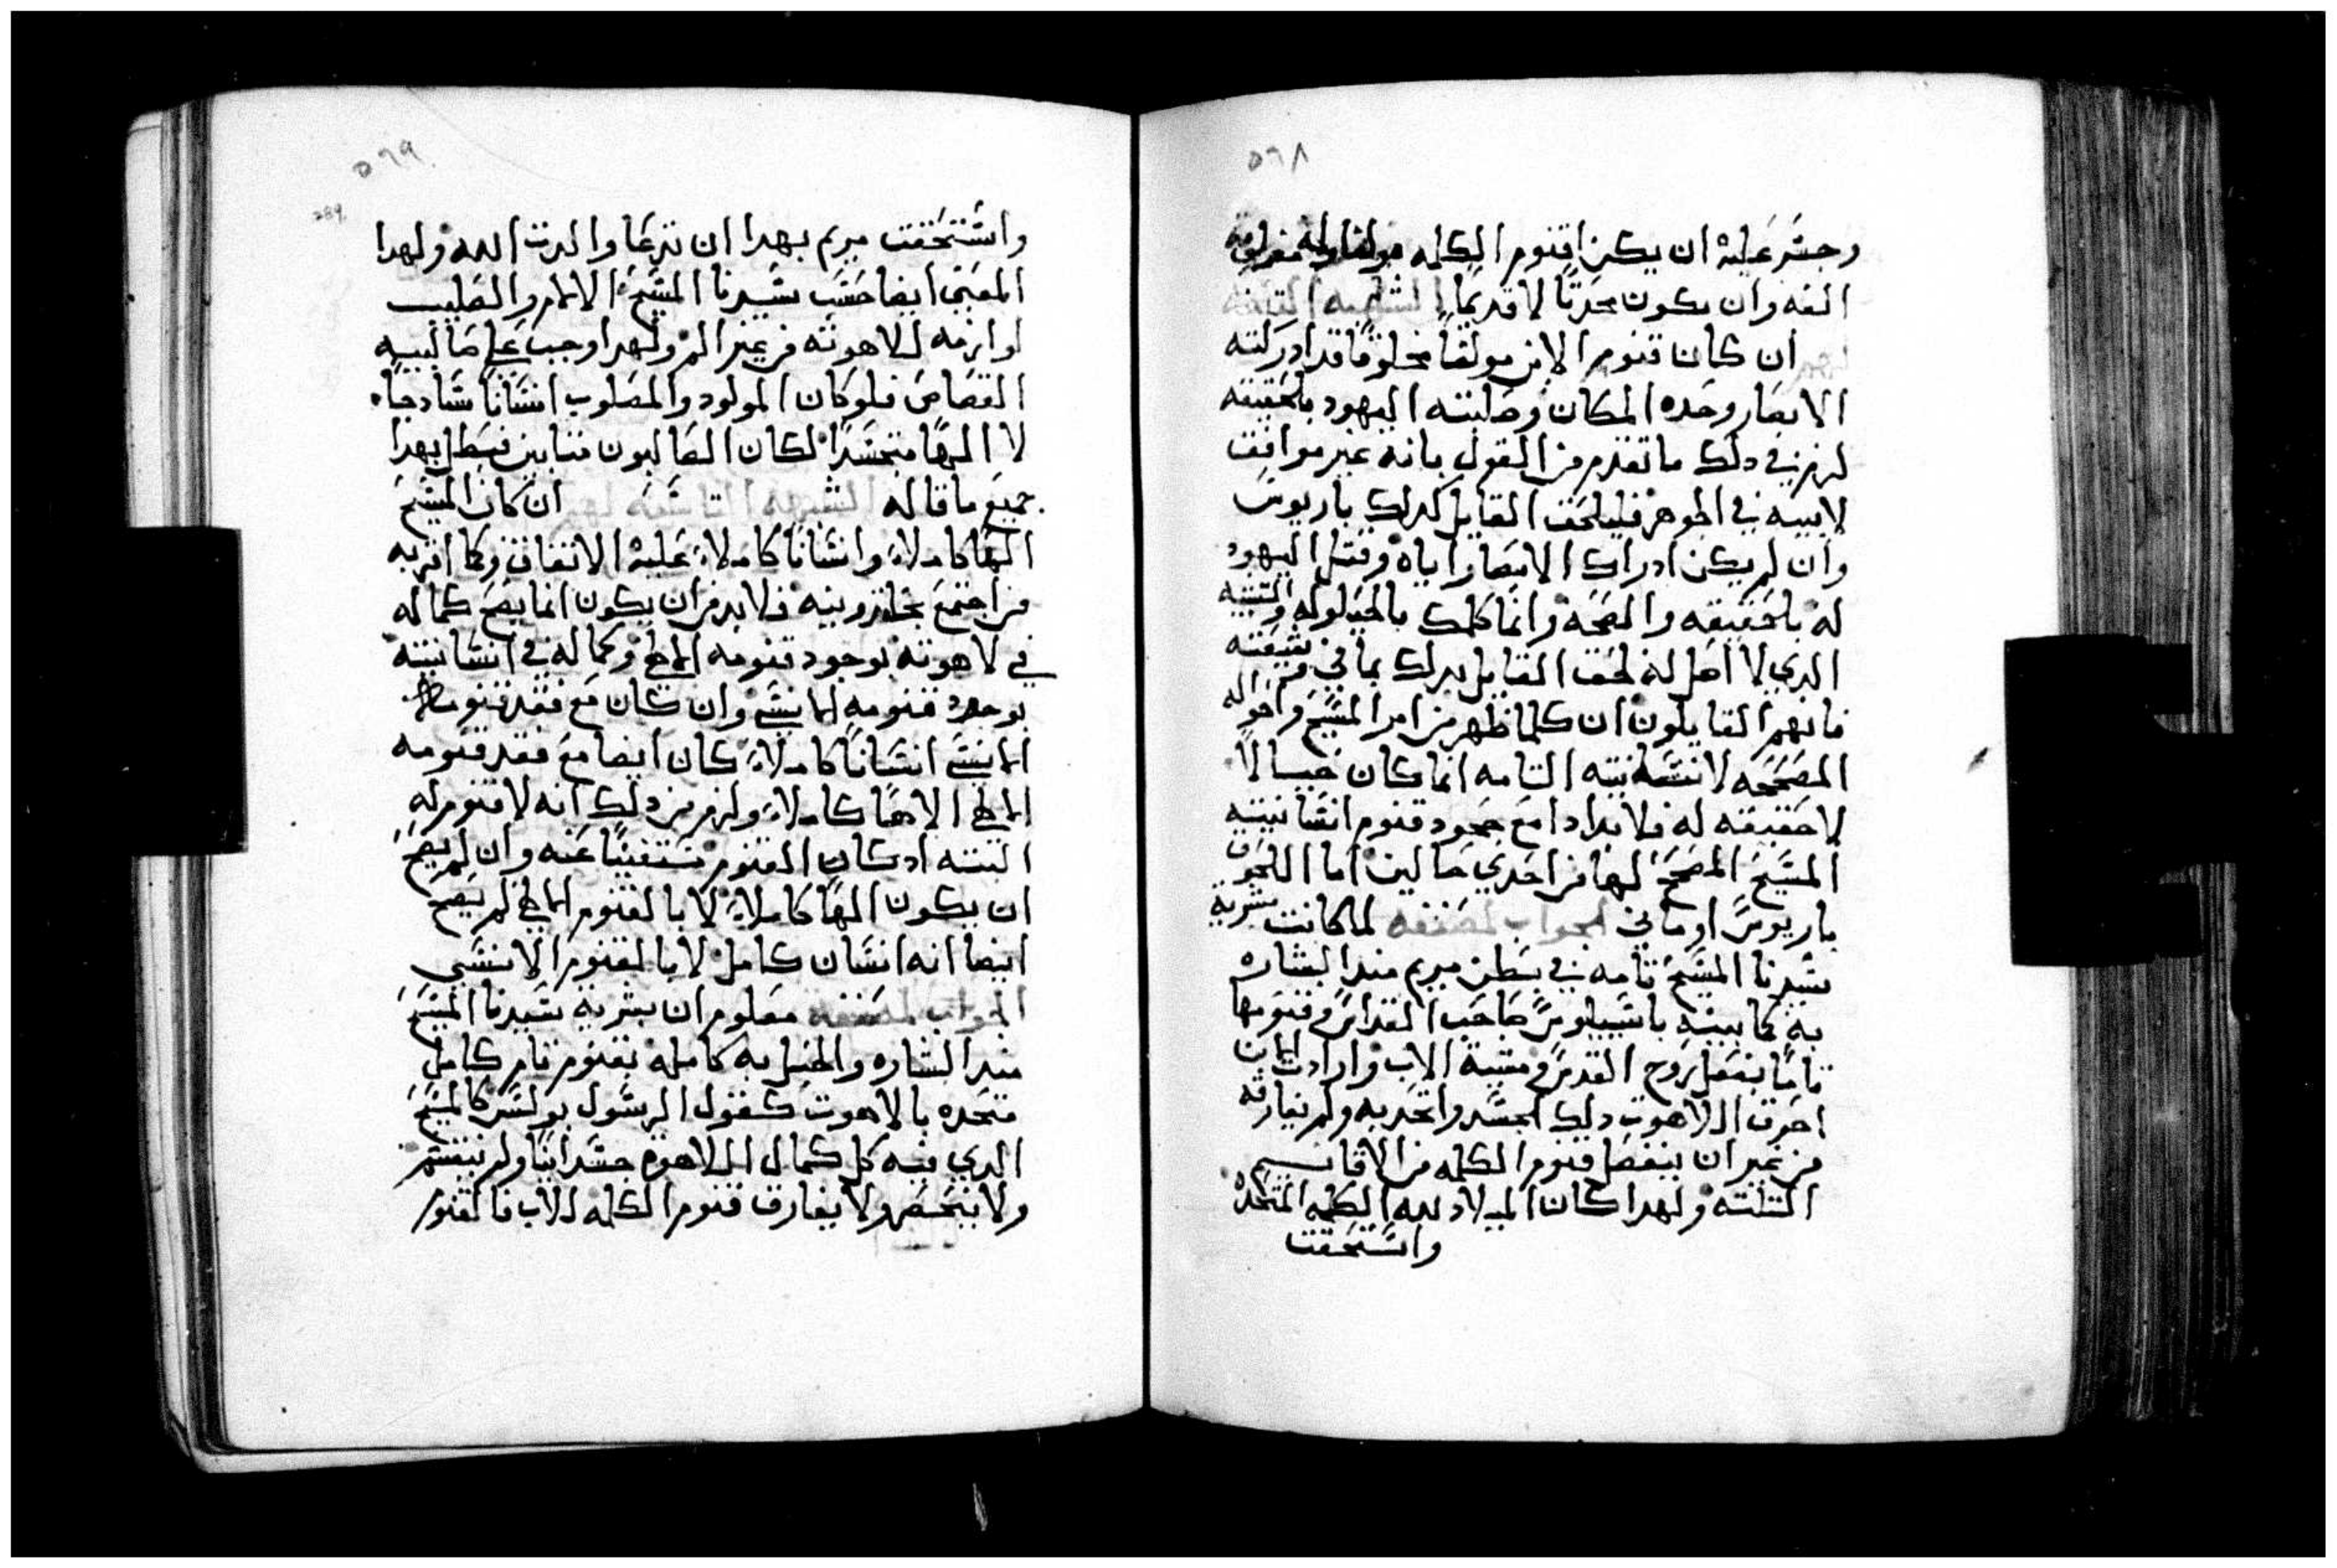 ٥٦٨
وجسر عليه ان يكن اقنوم الكلمه مولفا وله مفرقه
الفه وان يكون محدثا لا قديما الشبهه الثامنه
ان كان قنوم الابن مولفا مخلوقا قد ادركته
الابصار وحده المكان وصلبته اليهود بالحقيقه
لزم في دلك ما تقدم من القول بانه غير موافق
لابيه في الجوهر فليلحق القايل كدلك باريوس
وان لم يكن ادراك الابصار اياه وقتل اليهود
له بالحقيقه والصحه وانما كلمك بالحيلوله والتشبيه
الدي لا اصل له لحق القايل بدلك بماني وشيعته
فانهم القايلون ان كلما ظهر من امر المسيح واحواله
المصححه لانسانيته التامه انما كان خيبالا
لا حقيقه له فلا بد ادا مع جحود قنوم انسانيته
المسيح المصحح لها من احدي حالين اما اللحوق
باريوس او ماني الجواب لمصنفه لما كانت بشرية
سيدنا المسيح تامه في بطن مريم مند البشاره
به كما بينه باسيليوس صاحب القداس وقنومها
تاما بفعل روح القدس ومشية الاب وارادت الابن
احرق اللاهوت دلك الجسد واتحد به ولم يفارقه
من غير ان ينفصل قنوم الكلمه من الاقانيم
الثلثه ولهدا كان الميلاد لله الكلمه المتحده
واستحقت
٥٦٩
289
واستحقت مريم بهدا ان تدعا والدت الله ولهدا
المعني ايضا حسب سيدنا المسيح الالام والصليب
لوازمه للاهوته من غير الم ولهدا وجب علي صالبيه
القصاص فلو كان المولود والمصلوب انسانا سادجا
لا الها متجسدا لكان الصالبون مثابين فبطل بهدا
جميع ما قاله الشبهه التاسعه لهم ان كان المسيح
الها كاملا وانسانا كاملا عليه الاتفاق وكما اقر به
من اجتمع بخلقدونيه فلا بد من ان يكون انما يصح كماله
في لاهوته بوجود قنومه الالهي وكماله في انسانيته
بوجود قنومه الانسي وان كان مع فقد قنومه
الانسي انسانا كاملا كان ايضا مع فقد قنومه
الالهي الاها كاملا ولزم من دلك انه لا قنوم له
البته اد كان القنوم مستغنيا عنه وان لم يصح
ان يكون الها كاملا لا بالقنوم الالهي لم يصح
ايضا انه انسان كامل لا بالقنوم الانسي
الجواب لمصنفه معلوم ان بشرية سيدنا المسيح
مند البشاره والحبل به كامله بقنوم تام كامل
متحده بالاهوت كقول الرسول بولس كالمسيح
الدي فيه كل كمال اللاهوت جسدانيا ولم ينقسم
ولا يتحصر ولا يفارق قنوم الكلمه للاب فالقنوم